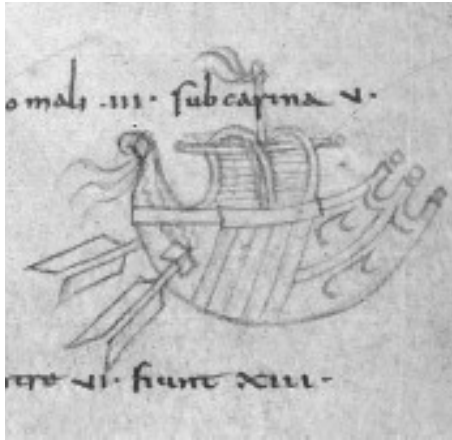 o mali .iii. sub carina v.
vi. fiunt xiii.